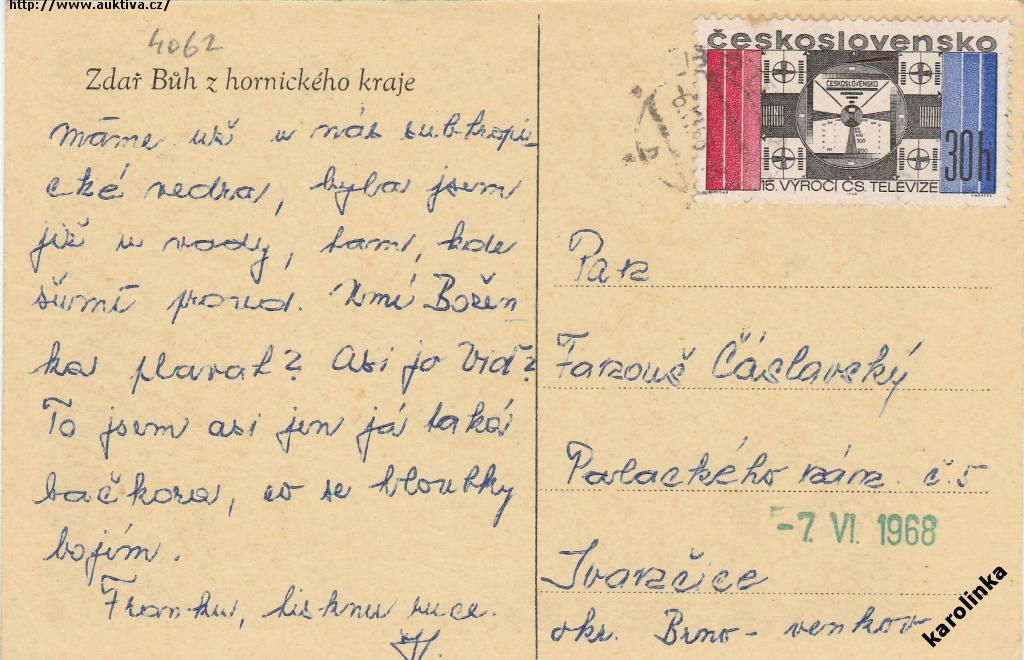 http://www.auktiva.cz/
4062
Zdař Bůh z hornického kraje
Máme už u nás subtropi-
cké vedra, byla jsem
již u vody, tam, kde
šumí proud. Umí Božen
ka plavat? Asi jo viď?
To jsem asi jen já taká
bačkora, co se hloubky
bojím.
Franku, tisknu ruce.
H.
Československo
ČESKOSLOVENSKO
30h
15. VÝROČÍ ČS. TELEVIZE
Pan
Fanouš Čáslavský
Palackého nám. č. 5
-7. VI. 1968
Ivančice
okr. Brno - venkov
karolinka